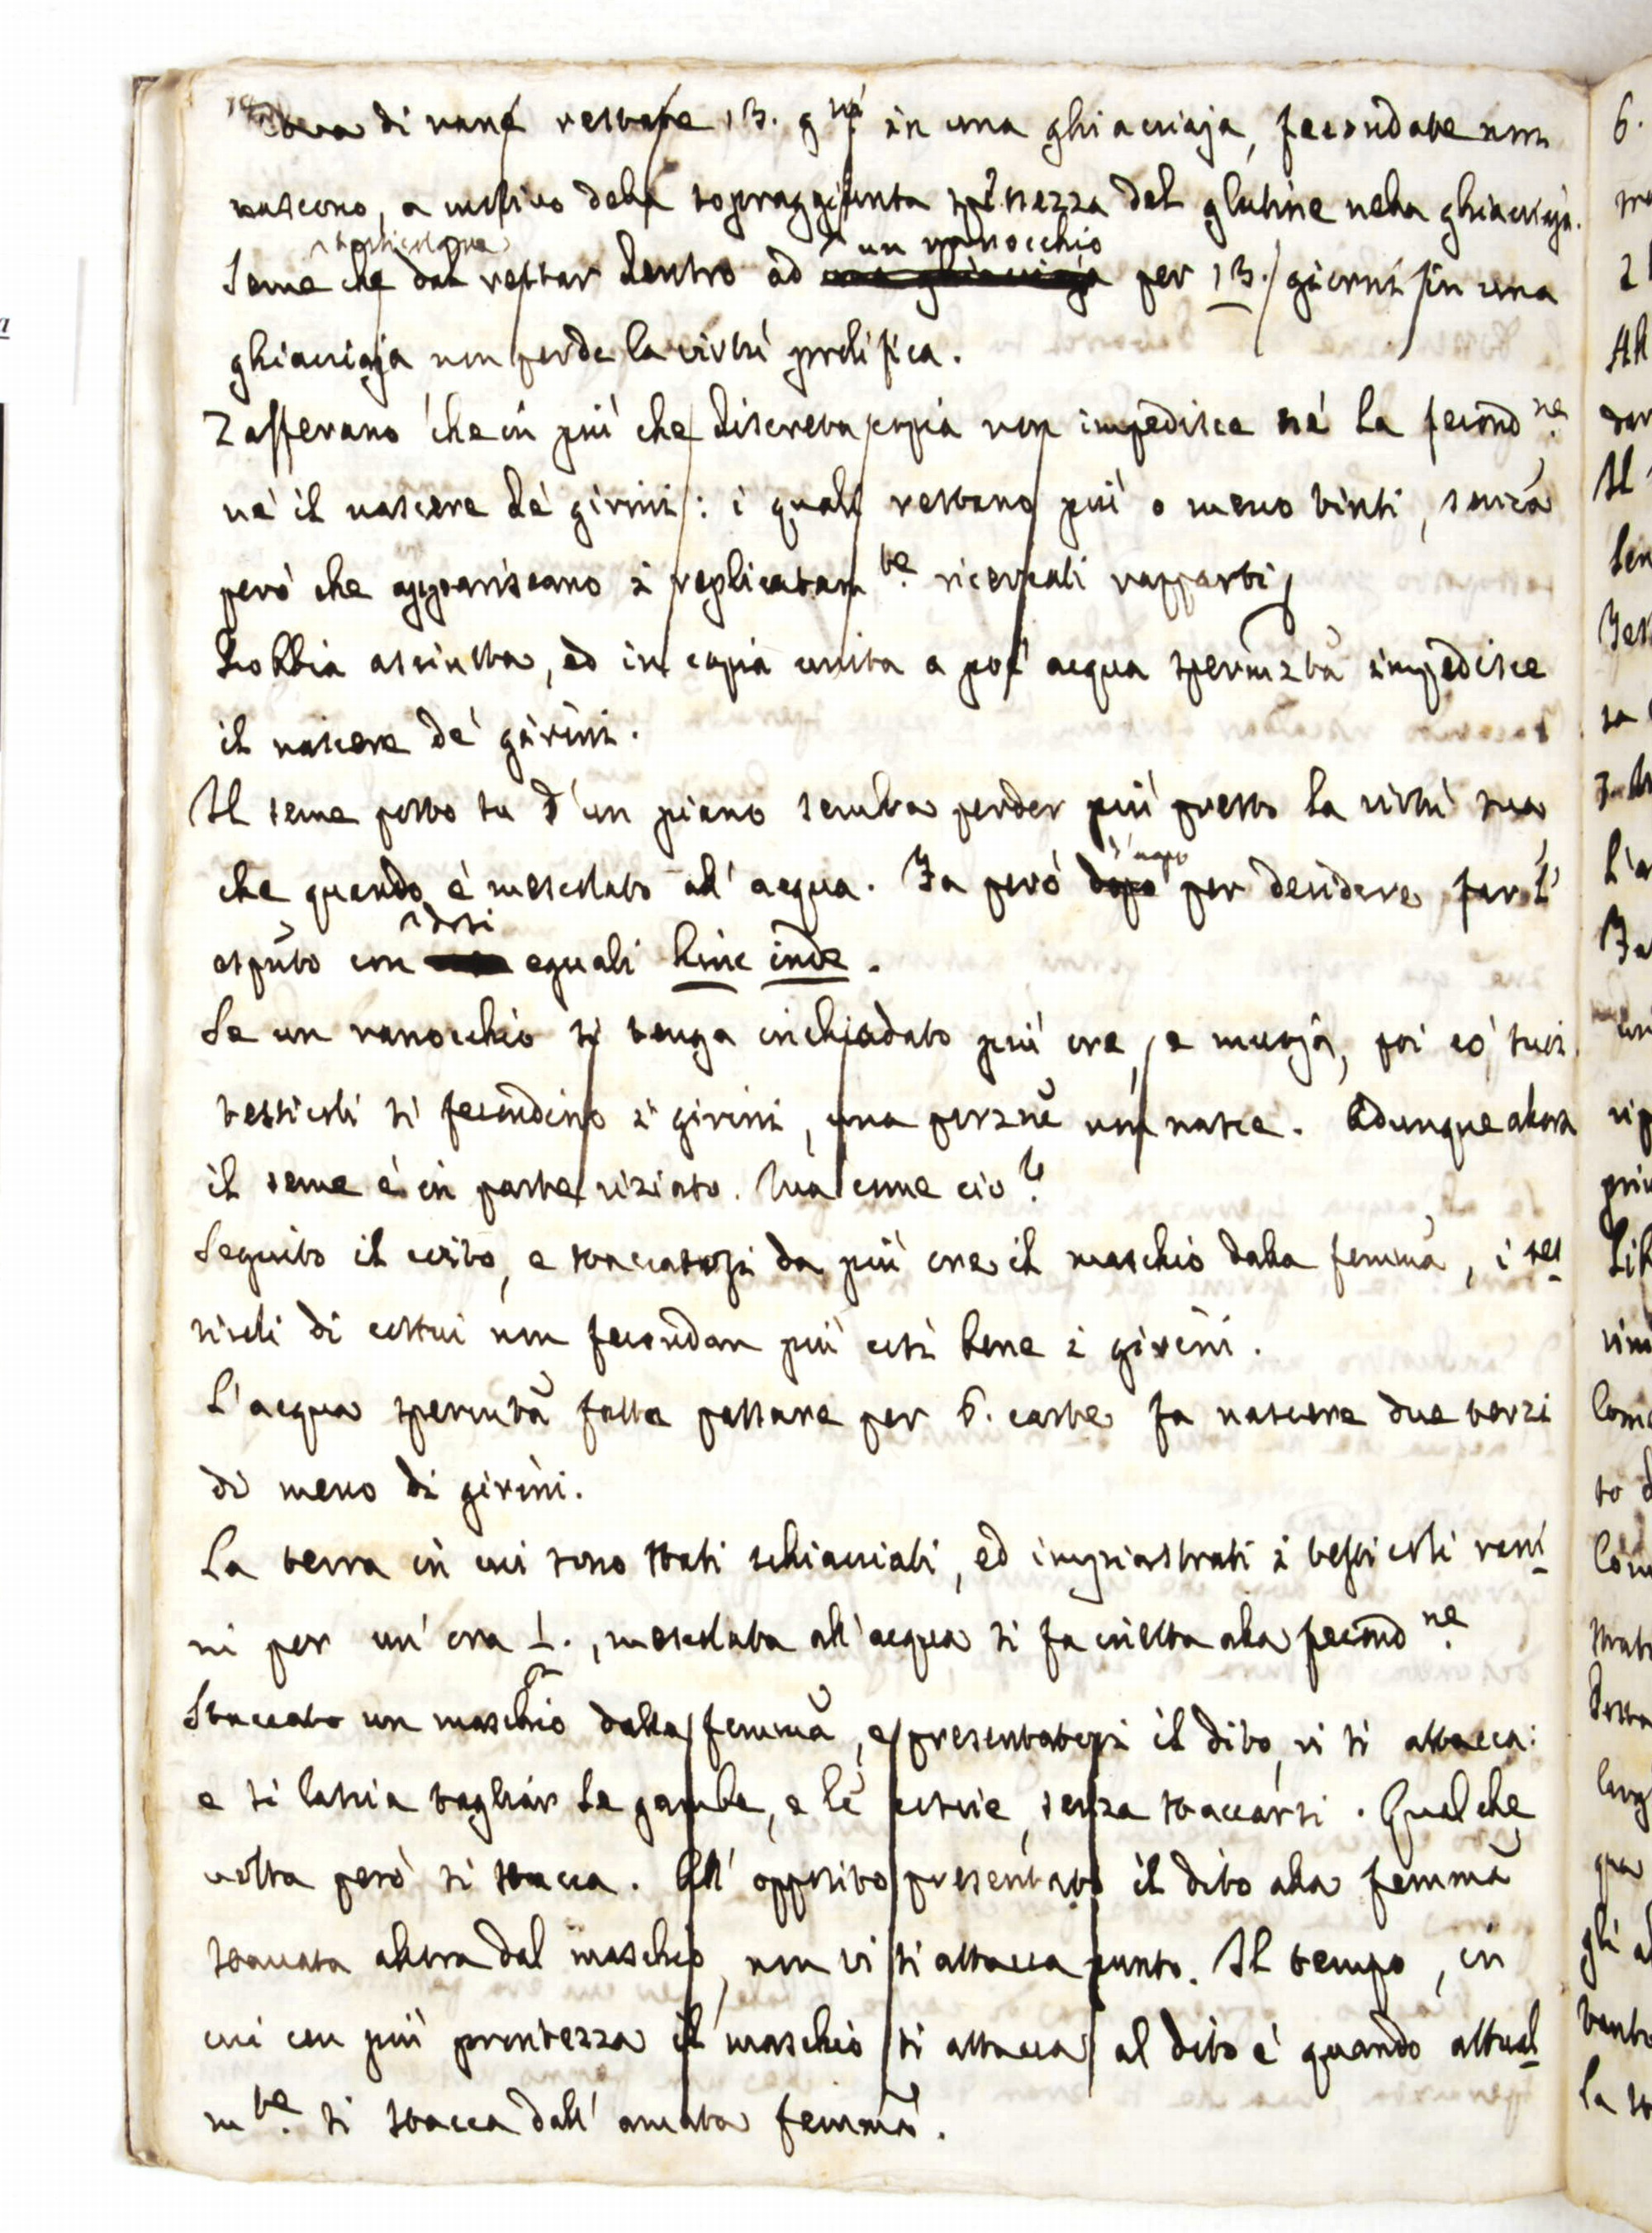 Ova di rane restate 13. g.ni in una ghiacciaja, fecondate non
nascono, a motivo della sopraggiunta spessezza del glutine nella ghiacciaja.
Seme che dal restar dentro ad un ranocchio per 13. giorni in una
ghiacciaja non perde la virtù prolifica.
Zafferano che in più che discreta copia non impedisce né la fecond.ne
né il nascere de' girini: i quali restano più o meno tinti, senza
però che appariscano i replicatam.te ricercati rapporti,
Robbia asciutta, ed in copia unita a poc' acqua spermat.ª impedisce
il nascere de' girini.
Il seme posto su d'un piano sembra perder più presto la virtù sua
che quando è mescolato all' acqua. Fa però d'uopo per decidere far l'
esp.to con dosi eguali hinc inde.
Se un ranocchio si tenga inchiodato più ore, e muoja, poi co' suoi
testicoli si fecondino i girini, una porzne non nasce. Adunque allora
il seme è in parte viziato. Ma come ciò?
Seguito il coito, e staccatosi da più ore il maschio dalla femmª, i tes
ticoli di costui non fecondan più così bene i girini.
L'acqua spermatª fatta passare per 6. carte fa nascere due terzi
di meno di girini.
La terra in cui sono stati schiacciati, ed impiastrati i testicoli rani
ni per un' ora 1/2., mescolata all' acqua si fa inetta alla fecond.ne
Staccato un maschio dalla femmª, e presentatogli il dito, vi si attacca:
e si lascia tagliar le gambe, e le coscie, senza staccarsi. Qualche
volta però si stacca. All' opposito presentato il dito alla femmª
staccata allora dal maschio, non vi si attacca punto. Il tempo, in
cui con più prontezza il maschio si attacca al dito è quando attual
m.te si stacca dall' amata femmª.